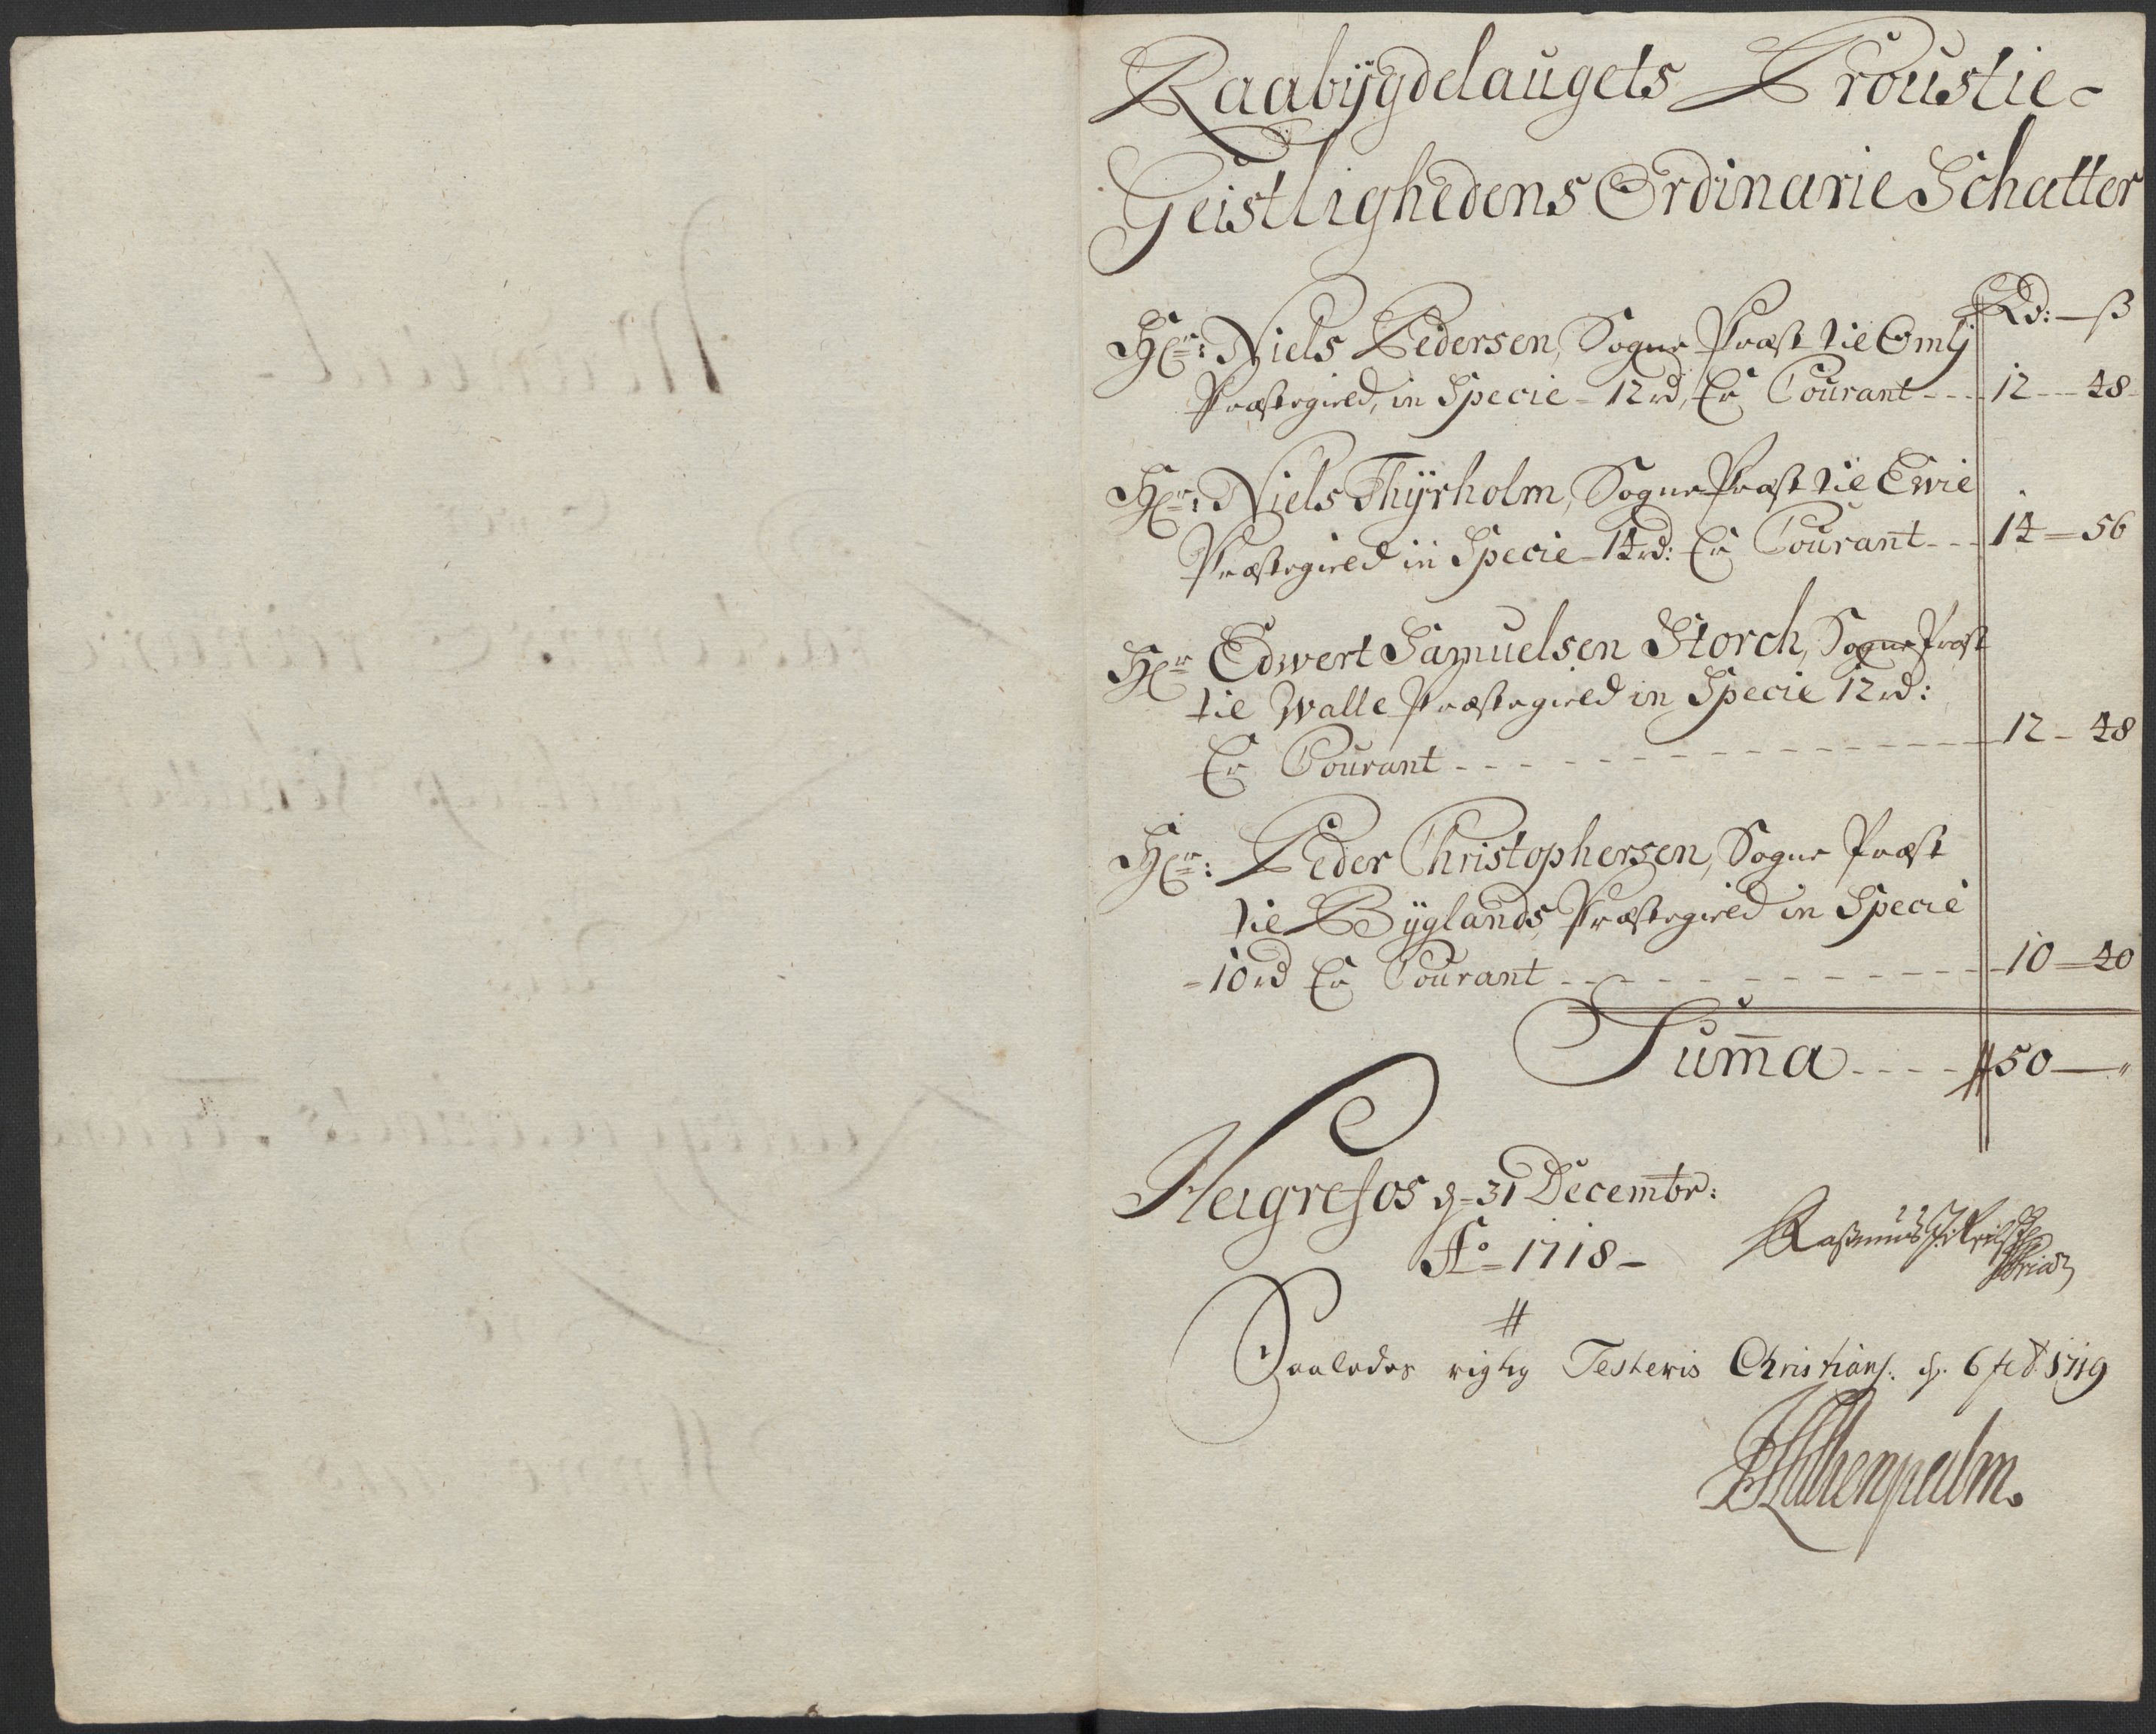 Raabÿgdelaugets Proustie-
Geistlighedens Ordinarie Schatter
Rd: — ß
Hr: Niels Pedersen, Sogne Præst til Omlj
Præstegield, in Specie - 12 rd, Er Courant - - - 12 - - - 48 -
Hr: Niels Thÿrholm, Sogne Præst til Ewie
Præstegield in Specie - 14 rd: Er Courant - - - 14 = 56
Hr Edwert Samuelsen Storch, Sogne Præst
til Walle Præstegield in Specie 12 rd:
Er Courant - - - - - - - - - - 12 - 48
Hr: Peder Christophersen, Sogne Præst
til Bÿglands Præstegield in Specie
- 10 rd Er Courant - - - - - - - - - - 10 = 40
Sum̅a - - - - 50 — "
Heigrefos d = 31 Decembr:
Ao = 1718 -
Rasmus
Saaledes rigtig Testeris Christians: d. 6 feb 1719